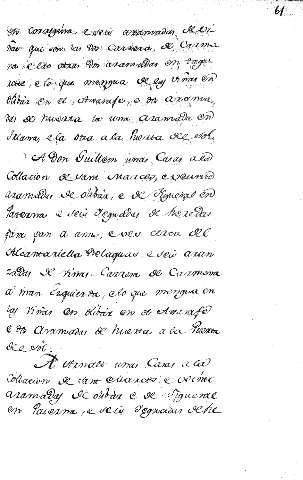 61
en Corayxina, e seis aranzadas de vi-
ñas que son las dos Carrera de Carmo
na, e las otras dos aranzadas en Taga-
rete, e lo que mengua de las viñas en
olibar en el Axarafe, e dos aranza-
das de huerta la una aranzada en
, e la otra a la Puerta de el Sol.
A Don Guillem unas Casas a la
Collacion de Sant Marcos, e veinte
aranzadas de olibar, e de Figueral en
Paterna e seis Yugadas de heredat
para pan a anno, e vez cerca del
Alcantariella de las aguas e seis aran-
zadas de viñas Carrera de Carmona
a man Ezquierda, e lo que mengua en
las viñas en olibar en el Axarafe
e dos Aranzadas de huerta a la Puerta
de el Sol.
A Arnalt unas Casas a la
Collacion de Sant Marcos, e veinte
aranzadas de olibar e de Figueral
en Paterna, e seis Yugadas de he